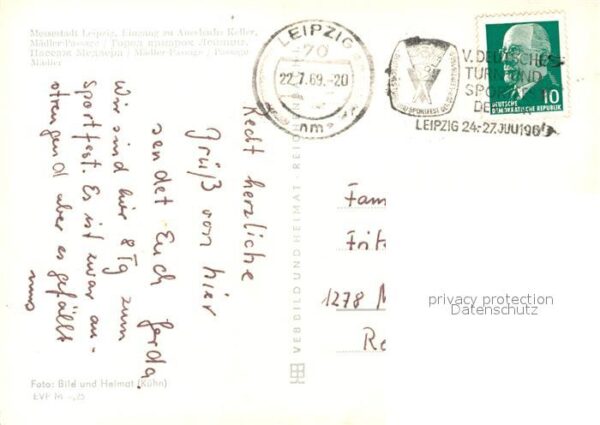 Messestadt Leipzig, Eingang zu Auerbachs Keller,
Mädler-Passage / Город ярмарок Лейпциг,
Пассаж Медлера / Mädler-Passage / Passage
Mädler
LEIPZIG
70
22.7.69.-20
nm
V. DEUTSCHES
TURN UND
SPORT
LEIPZIG 24.-27. JULI 1969
10
DEUTSCHE
DEMOKRATISCHE REPUBLIK
Recht herzliche
Grüß von hier
sendet Euch Gerda.
Wir sind hier 8 Tg zum
Sportfest. Es ist zwar an-
strengend aber es gefällt
uns
VEB BILD UND HEIMAT · REICHENBACH
Fam
Fritz
1278 M
Re
privacy protection
Datenschutz
Foto: Bild und Heimat (Kühn)
EVP M -,25